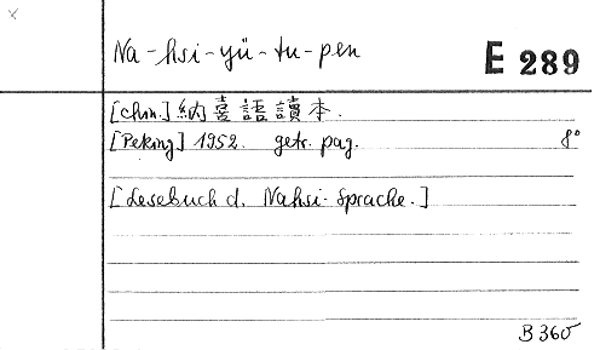 Na-hsi-yü-tu-pen
E 289
[chin.] 納喜語讀本.
[Peking] 1952. getr. pag. 8°
[Lesebuch d. Nahsi-Sprache.]
B 360